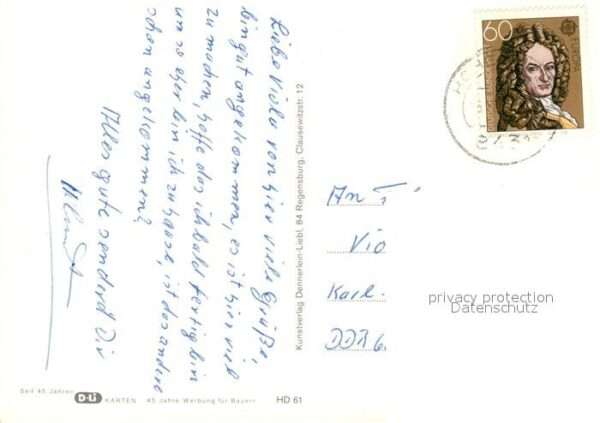 Liebe Viola von hier viele Grüße,
bin gut angekommen, es ist hier viel
zu machen, hoffe das ich bald fertig bin
um so eher bin ich zu hause, ist das andere
schon angekommen?
Alles gute sendet Dir
Kunstverlag Dennerlein-Liebl, 84 Regensburg, Clausewitzstr. 12
60
An
Vio
Karl-
DDR 6.
privacy protection
Datenschutz
Seit 45 Jahren
D-Li KARTEN 45 Jahre Werbung für Bayern HD 61